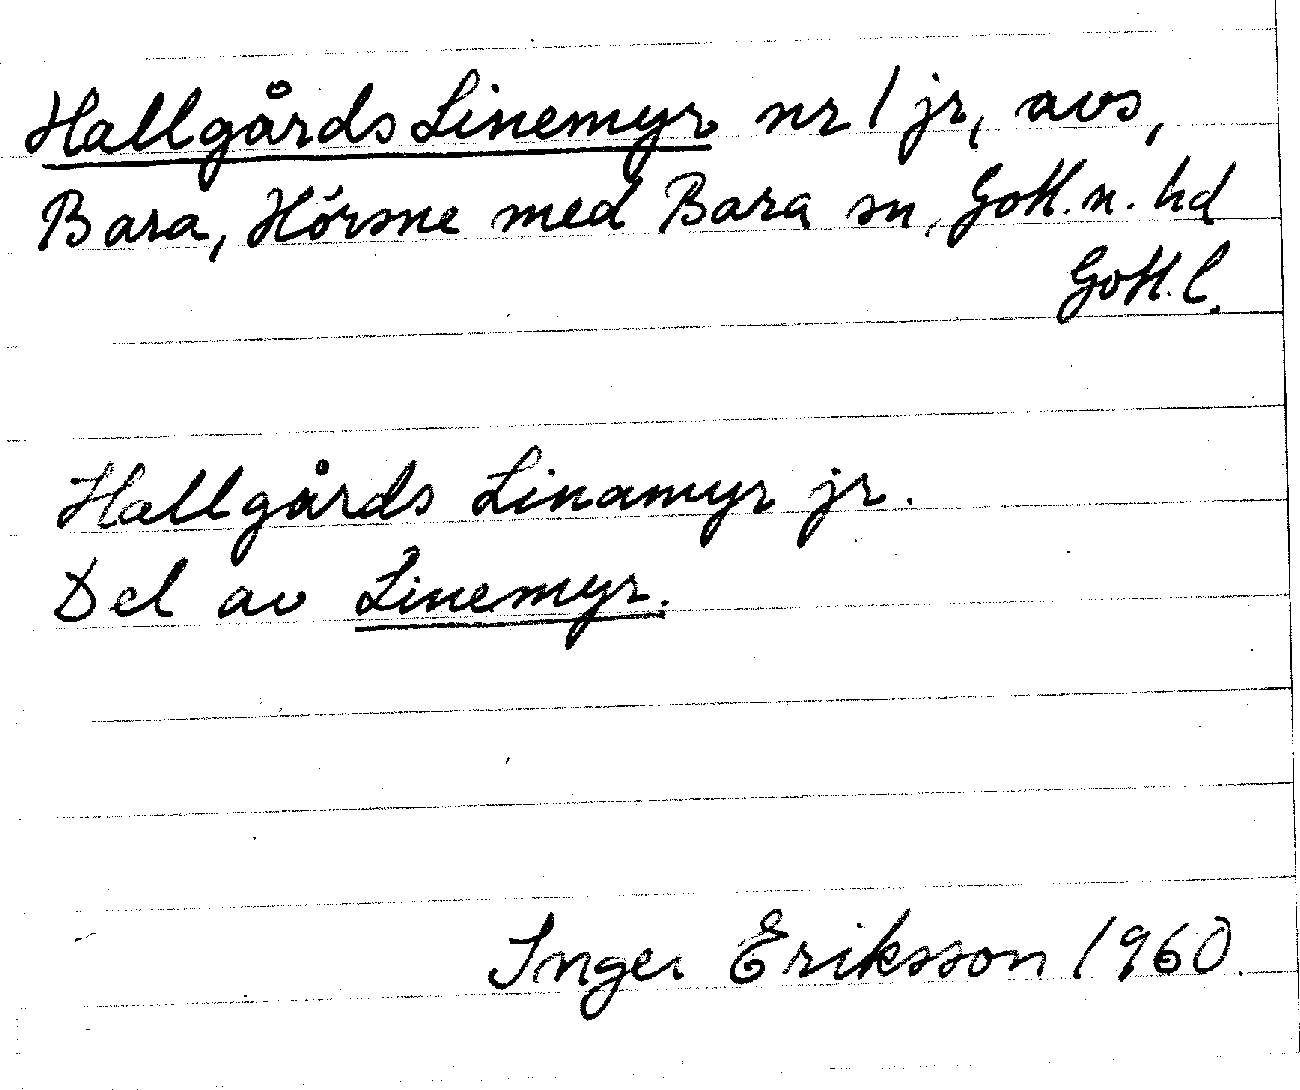 Hallgårds Linemyr nr 1 jr, avs,
Bara, Hörsne med Bara sn, Gotl. n. hd
Gotl. l.
Hallgårds Linamyr jr.
Del av Linemyr.
Inger Eriksson 1960.